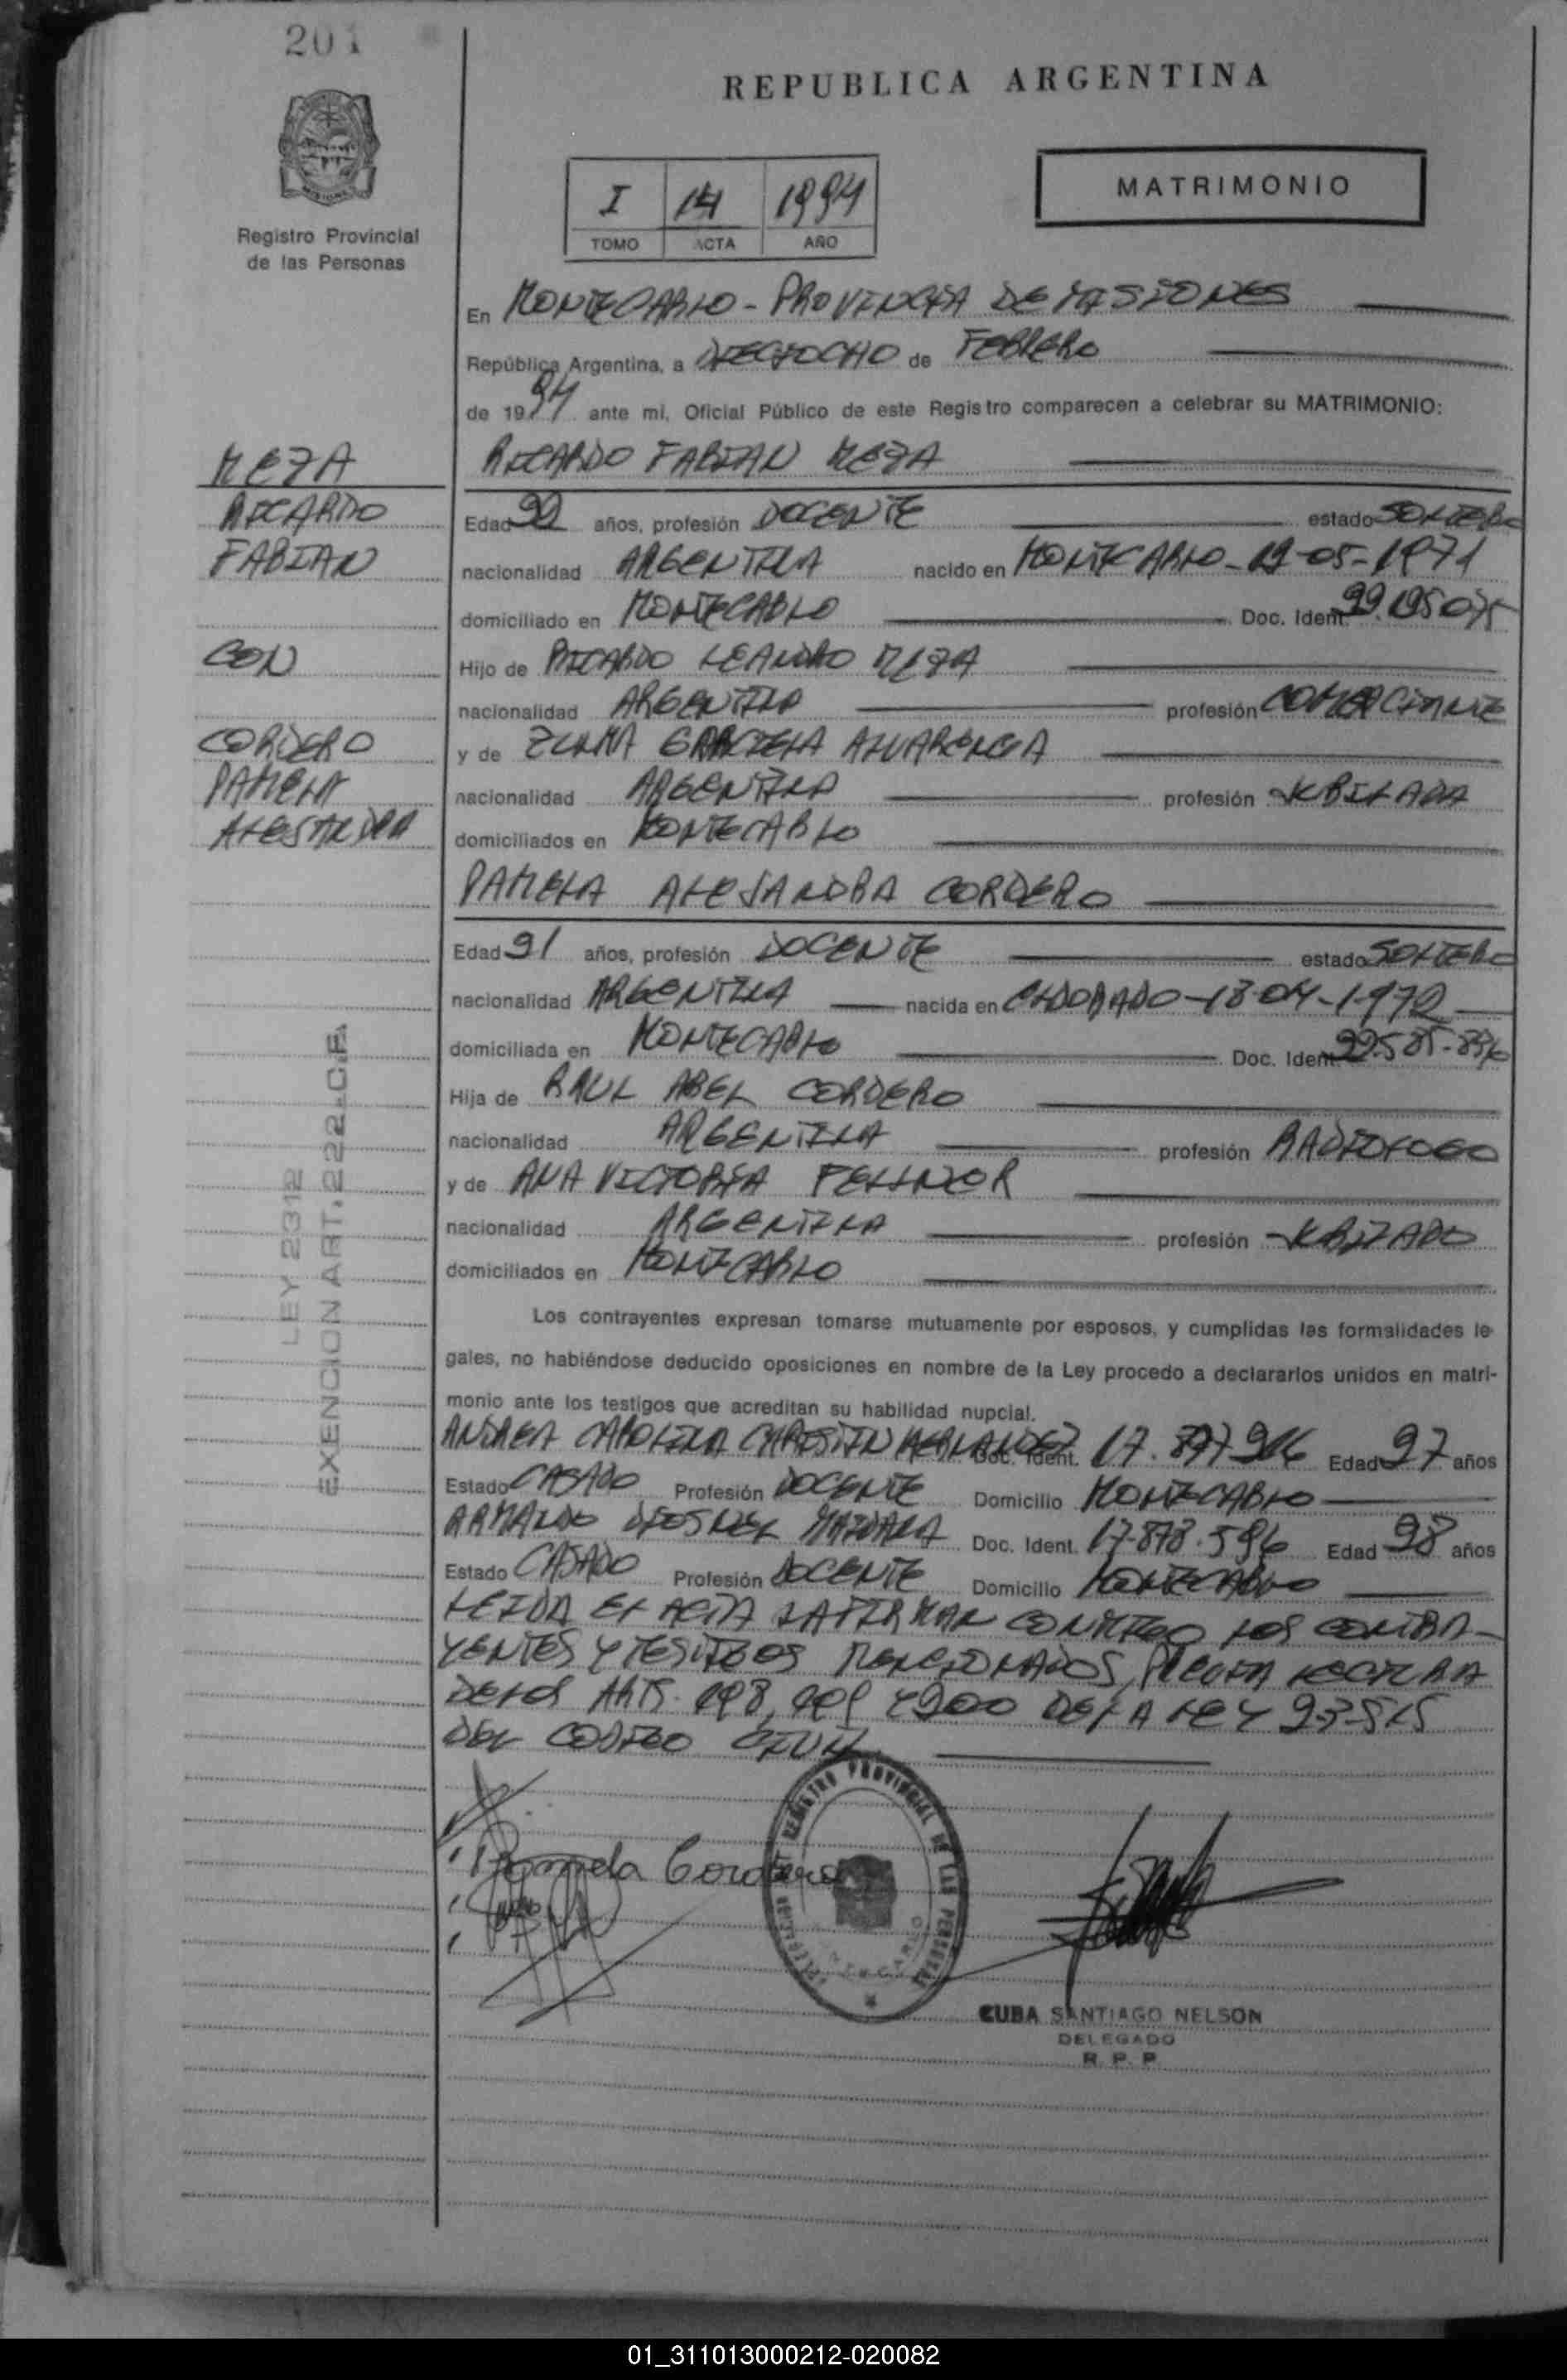 201
REPUBLICA ARGENTINA
MATRIMONIO
I 14 1994
TOMO ACTA AÑO
Registro Provincial
de las Personas
En MONTECARLO - PROVINCIA DE MISIONES
República Argentina, a DIECIOCHO de FEBRERO
de 1994 ante mí, Oficial Público de este Registro comparecen a celebrar su MATRIMONIO:
MEZA
RICARDO
FABIAN
CON
CORDERO
PAMELA
ALEJANDRA
LEY 2312
EXENCION ART. 222-C.F.
RICARDO FABIAN MEZA
Edad 22 años, profesión DOCENTE estado SOLTERO
nacionalidad ARGENTINA nacido en MONTECARLO - 19-05-1971
domiciliado en MONTECARLO Doc. Ident. 22.195.075
Hijo de RICARDO LEANDRO MEZA
nacionalidad ARGENTINA profesión COMERCIANTE
y de ZULMA GRACIELA ALVARENGA
nacionalidad ARGENTINA profesión JUBILADA
domiciliados en MONTECARLO
PAMELA ALEJANDRA CORDERO
Edad 21 años, profesión DOCENTE estado SOLTERO
nacionalidad ARGENTINA nacida en ELDORADO - 18-04-1972
domiciliada en MONTECARLO Doc. Ident.
Hija de RAUL ABEL CORDERO
nacionalidad ARGENTINA profesión RADIOLOGO
y de ANA VICTORIA
nacionalidad ARGENTINA profesión
domiciliados en MONTECARLO
Los contrayentes expresan tomarse mutuamente por esposos, y cumplidas las formalidades le-
gales, no habiéndose deducido oposiciones en nombre de la Ley procedo a declararlos unidos en matri-
monio ante los testigos que acreditan su habilidad nupcial.
ANDREA CAROLINA CHRISTIN HERNANDEZ Doc. Ident. Edad 27 años
Estado CASADO Profesión DOCENTE Domicilio MONTECARLO
ARMANDO Doc. Ident. 17.878.596 Edad 28 años
Estado CASADO Profesión DOCENTE Domicilio MONTECARLO
LEIDA EL ACTA LA FIRMAN CONMIGO LOS CONTRA-
YENTES Y TESTIGOS MENCIONADOS, PREVIA LECTURA
DE LOS ARTS. 198, 199 Y 200 DE LA LEY 23.515
DEL CODIGO CIVIL
Pamela Cordero
REGISTRO PROVINCIAL DE LAS PERSONAS
CUBA SANTIAGO NELSON
DELEGADO
R. P. P.
01_311013000212-020082